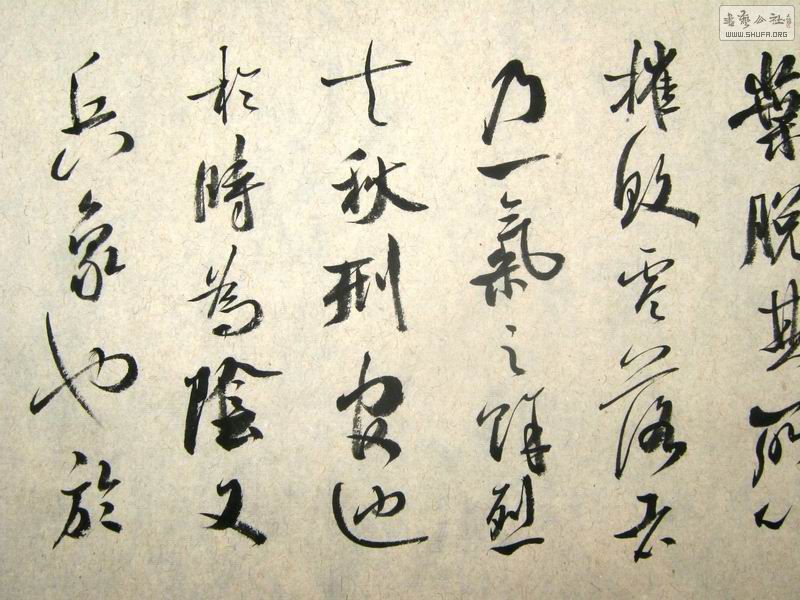 葉脫其所以
摧敗零落者
乃一氣之餘烈
夫秋刑官也
於時為陰又
兵象也於
書藝公社
WWW.SHUFA.ORG